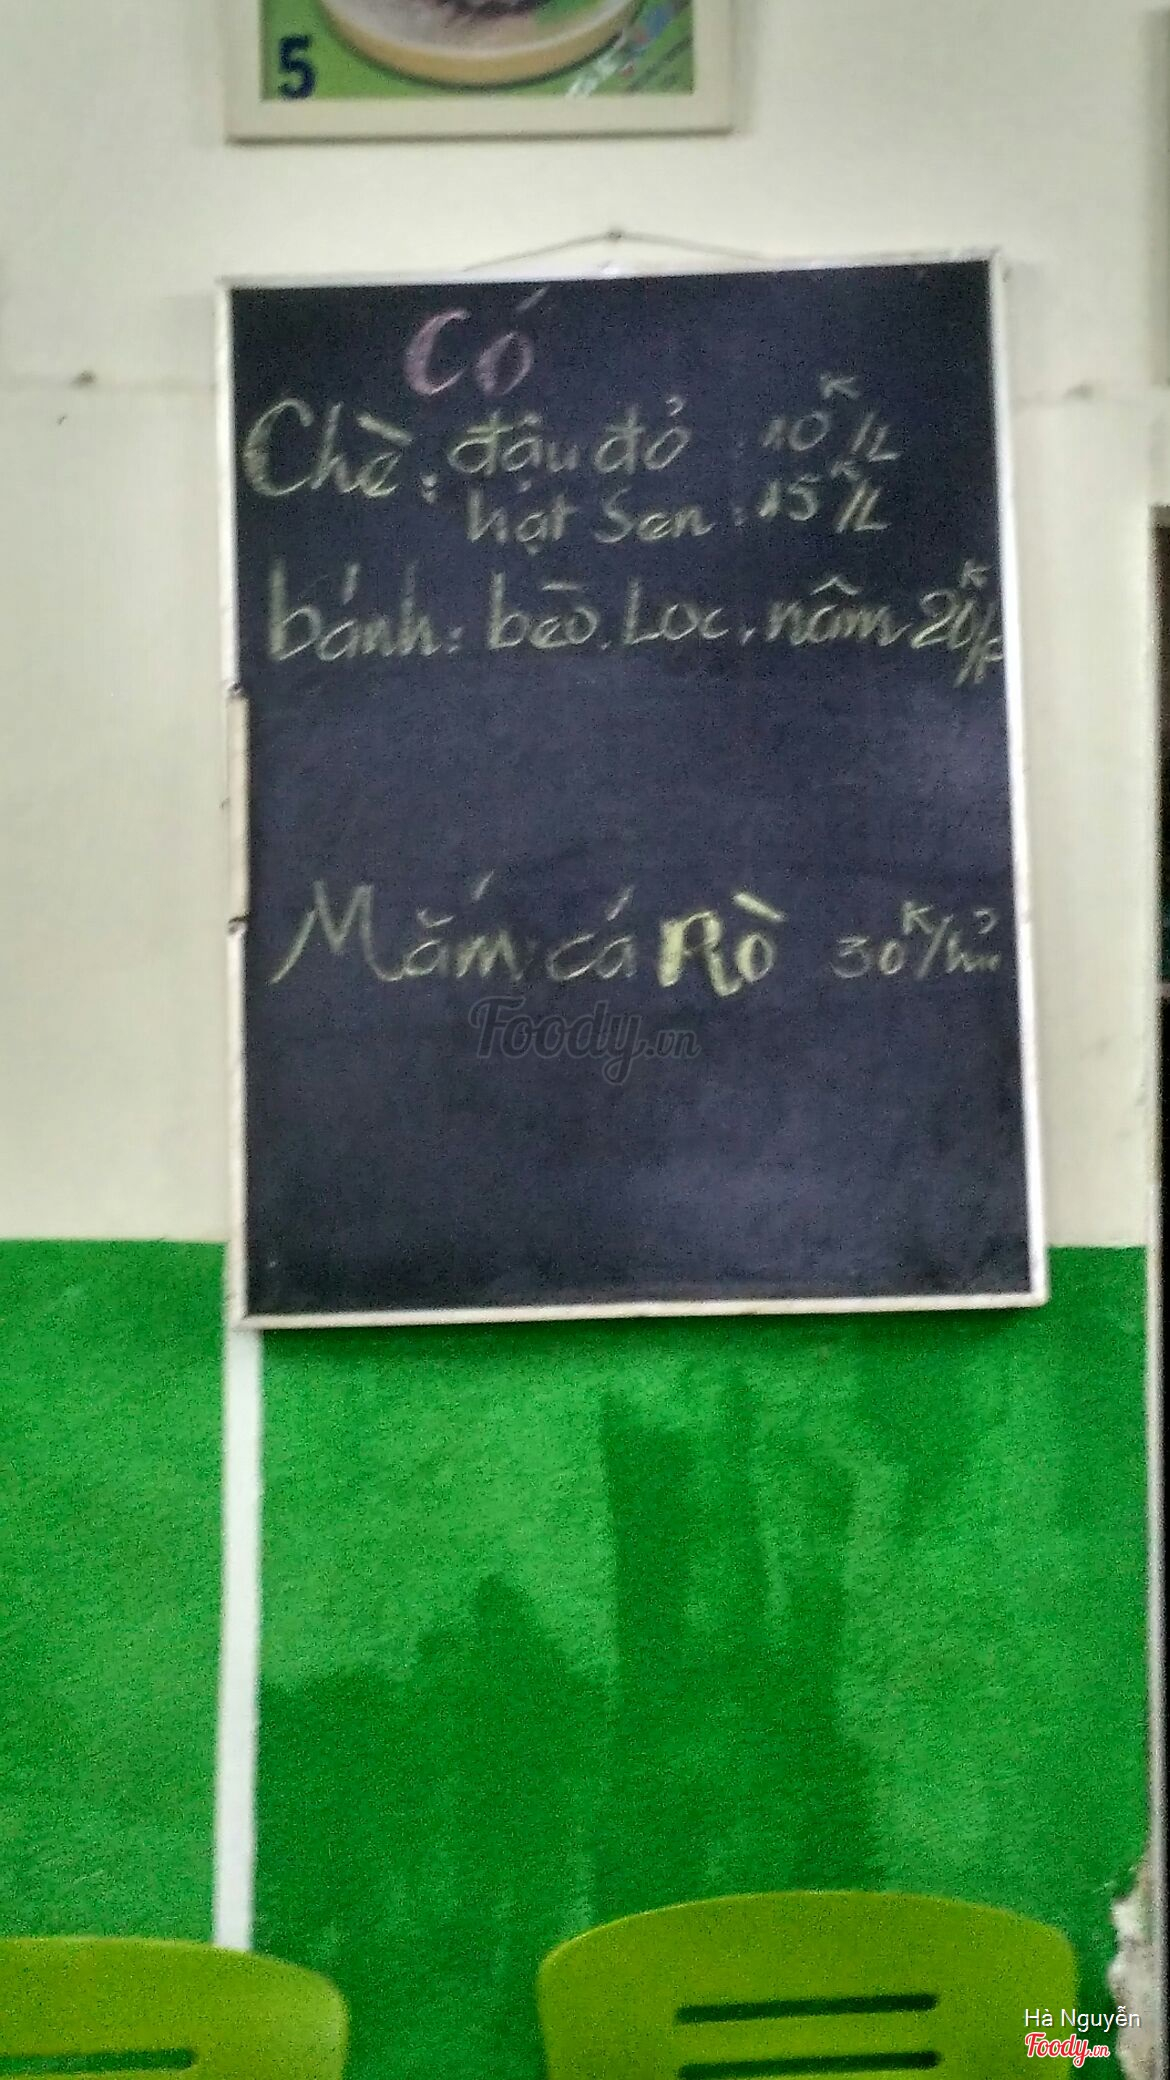 5
Có
Chè: đậu đỏ : 10K/L
hạt Sen : 15K/L
bánh: bèo. Lọc. nậm 20K/
Mắm cá Rò 30K/hủ
Foody.vn
Hà Nguyễn
Foody.vn